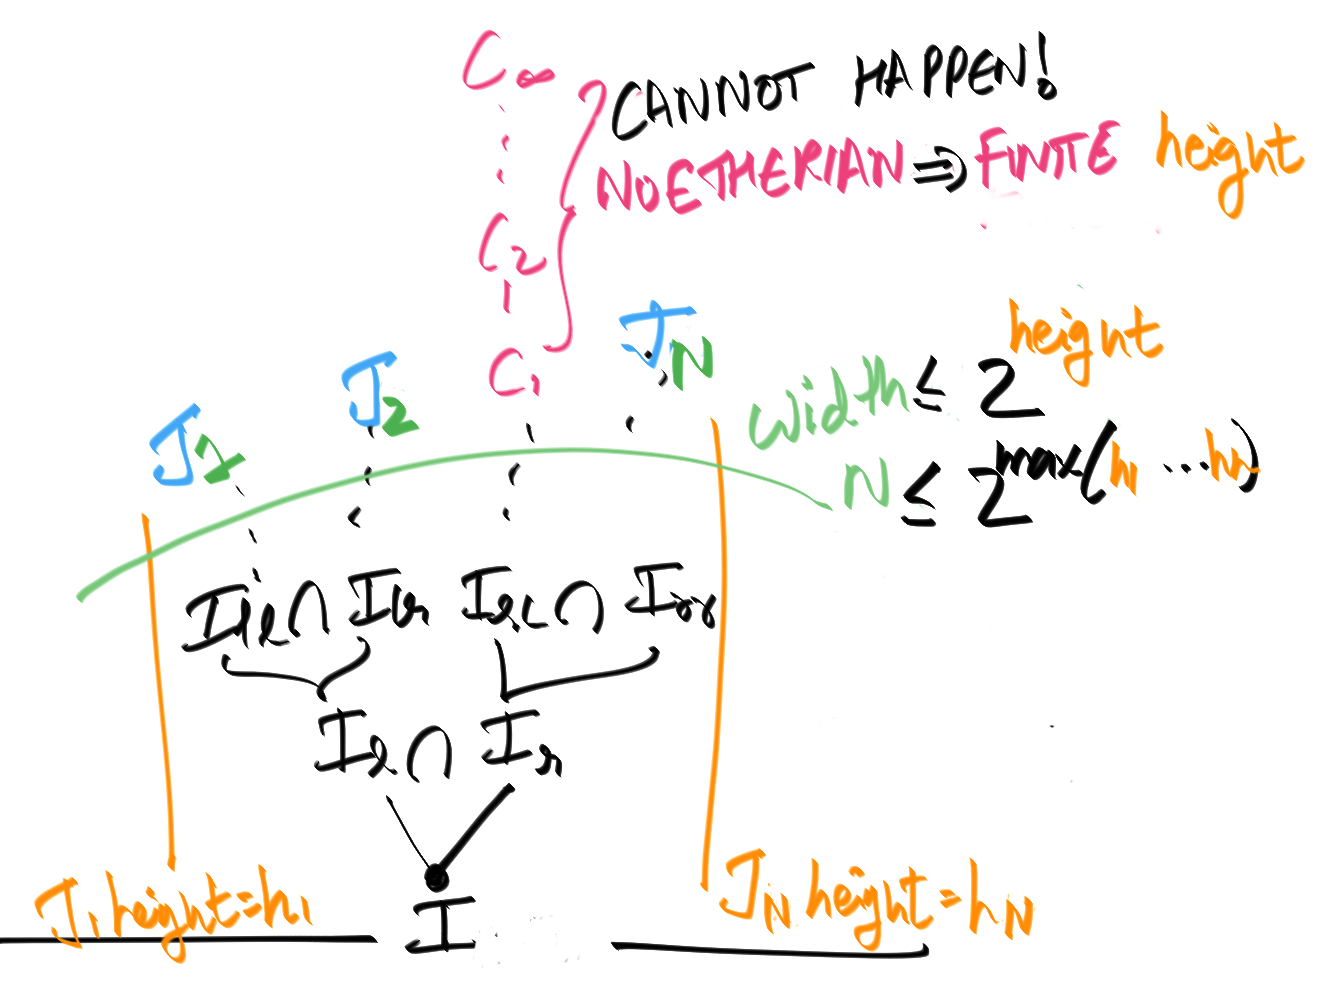 C∞
CANNOT HAPPEN!
NOETHERIAN ⇒ FINITE height
C2
C1
J1 J2 JN
width ≤ 2^height
N ≤ 2^max(h1 ...hn)
Ill ∩ Ilr Irl ∩ Irr
Il ∩ Ir
I
J1 height=h1
JN height=hN